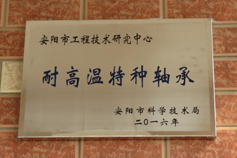 安阳市工程技术研究中心
耐高温特种轴承
安阳市科学技术局
二〇一六年